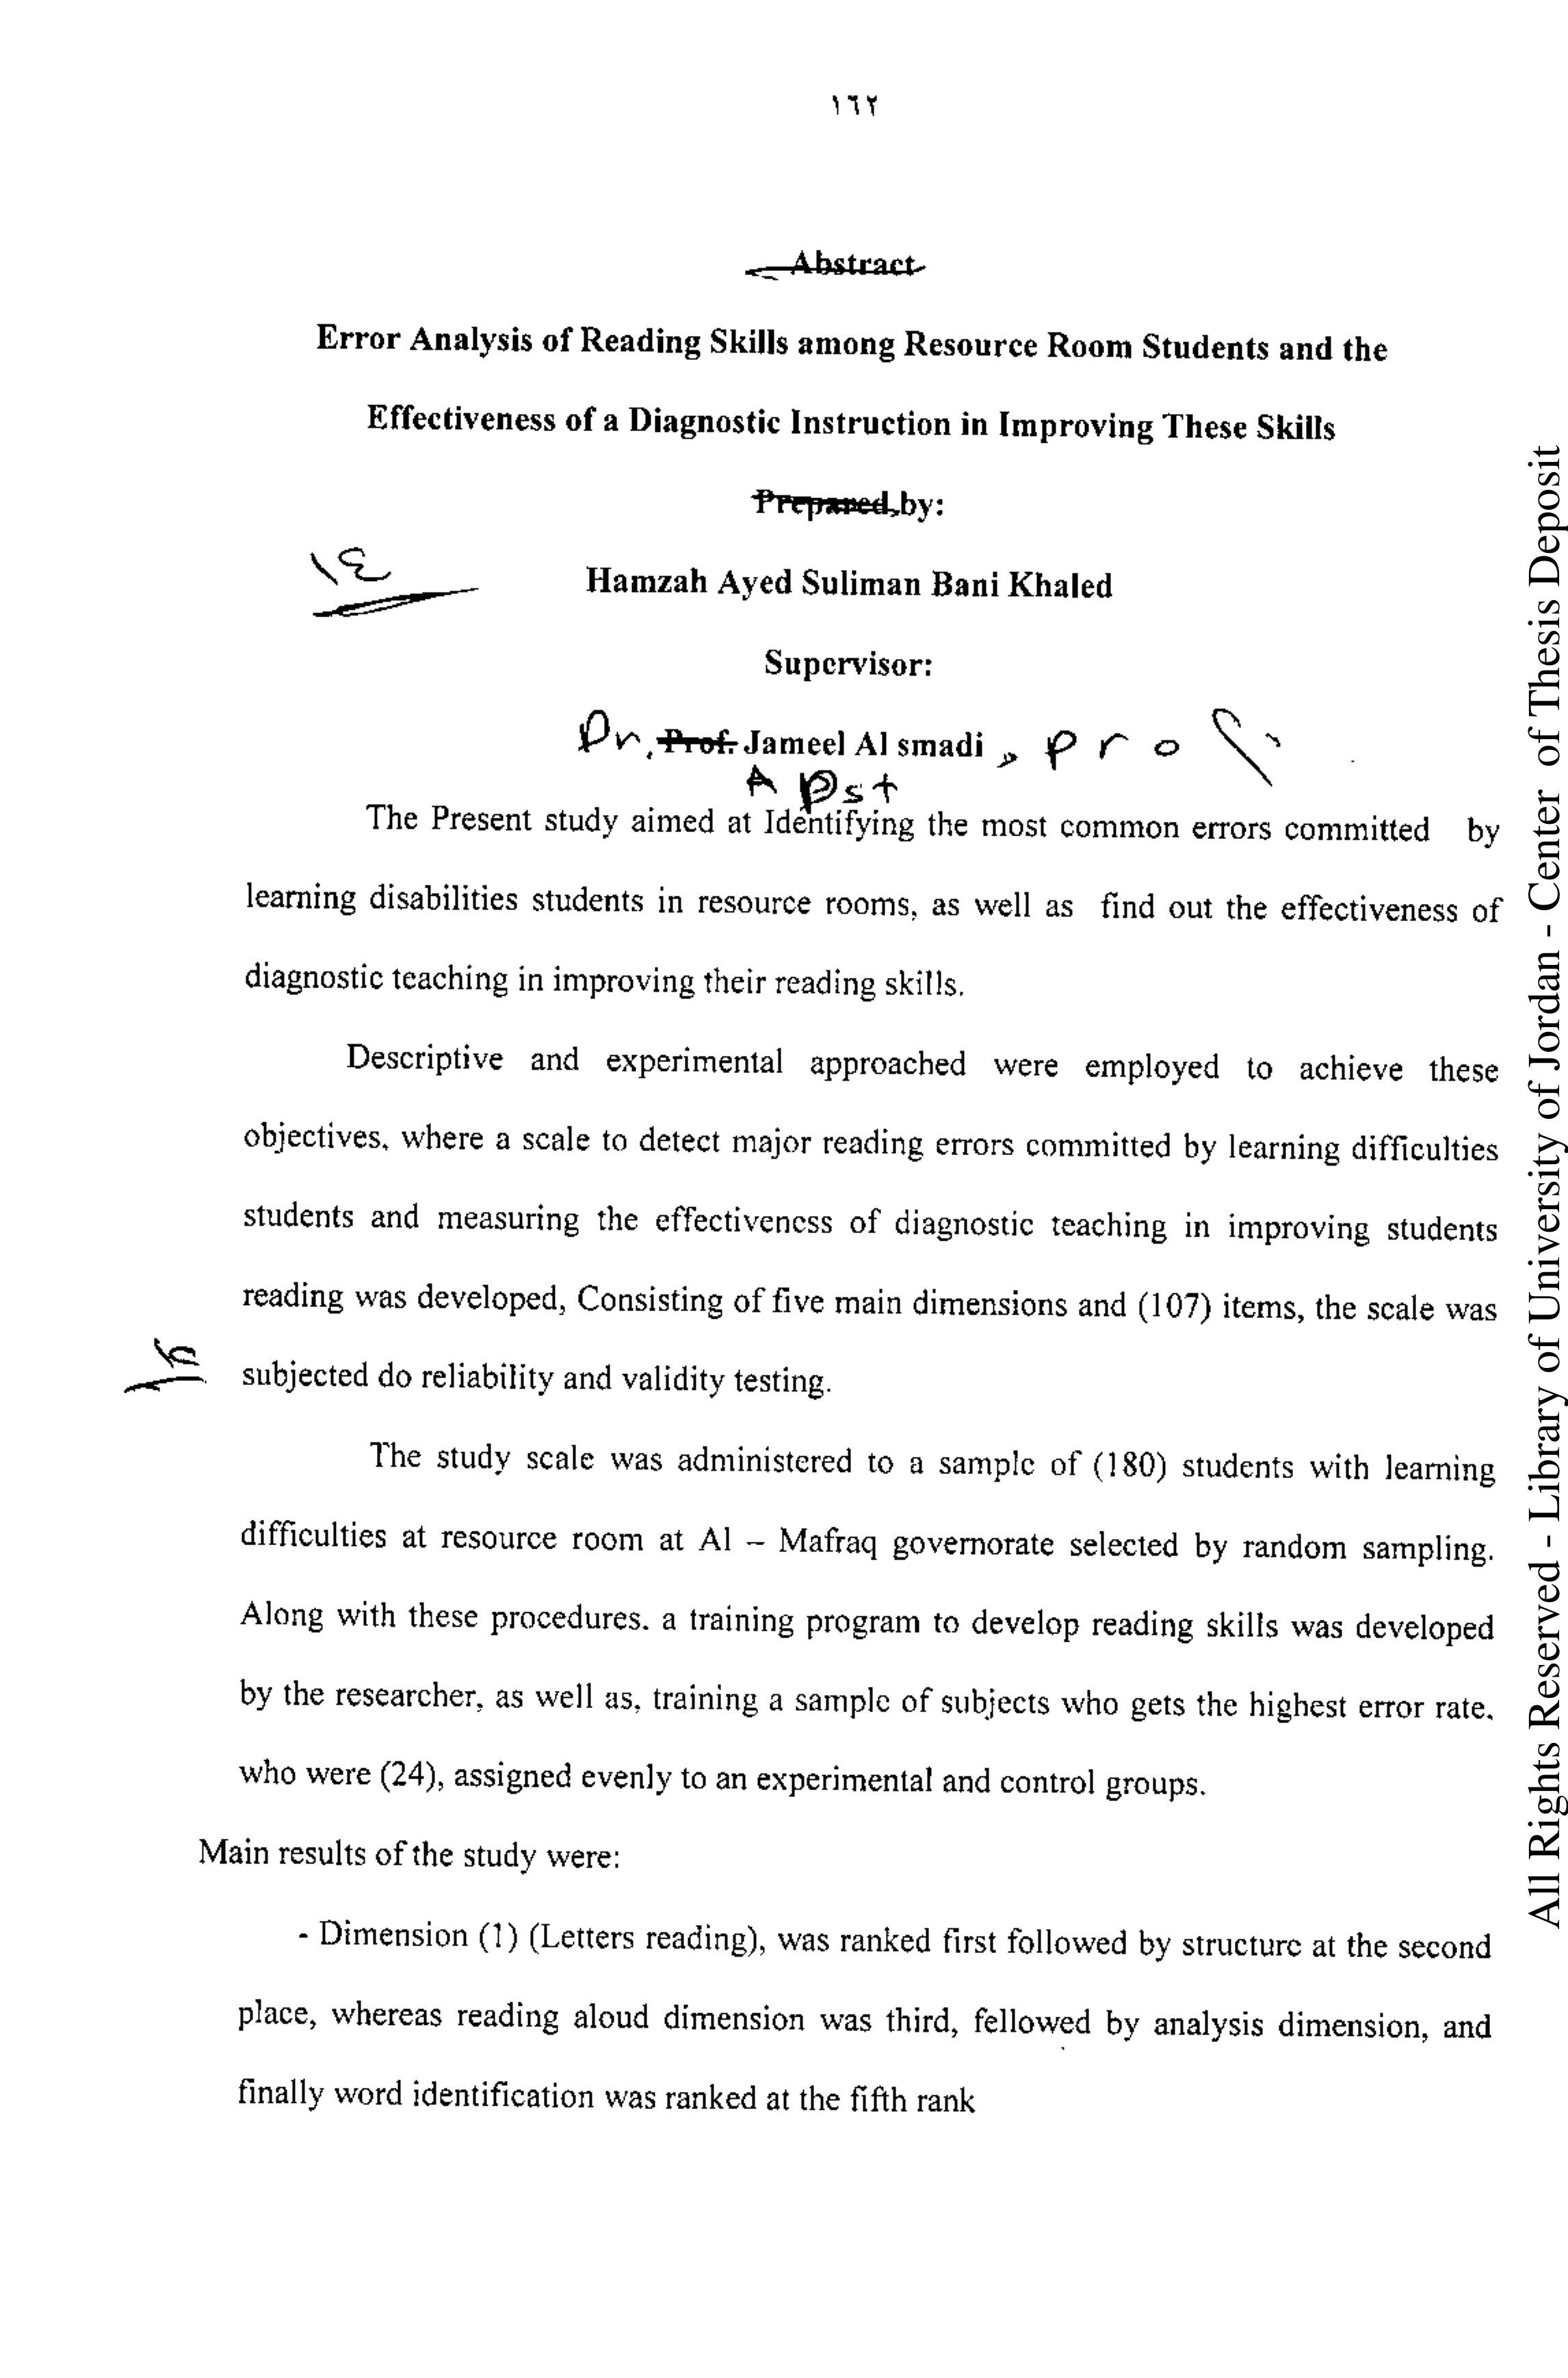 ١٦٢
Abstract
Error Analysis of Reading Skills among Resource Room Students and the
Effectiveness of a Diagnostic Instruction in Improving These Skills
Prepared by:
١٤
Hamzah Ayed Suliman Bani Khaled
Supervisor:
Dr. Prof. Jameel Al smadi , prof.
The Present study aimed at Identifying the most common errors committed by
learning disabilities students in resource rooms, as well as find out the effectiveness of
diagnostic teaching in improving their reading skills.
Descriptive and experimental approached were employed to achieve these
objectives, where a scale to detect major reading errors committed by learning difficulties
students and measuring the effectiveness of diagnostic teaching in improving students
reading was developed, Consisting of five main dimensions and (107) items, the scale was
subjected do reliability and validity testing.
The study scale was administered to a sample of (180) students with learning
difficulties at resource room at Al – Mafraq governorate selected by random sampling.
Along with these procedures. a training program to develop reading skills was developed
by the researcher, as well as, training a sample of subjects who gets the highest error rate.
who were (24), assigned evenly to an experimental and control groups.
Main results of the study were:
- Dimension (1) (Letters reading), was ranked first followed by structure at the second
place, whereas reading aloud dimension was third, fellowed by analysis dimension, and
finally word identification was ranked at the fifth rank
All Rights Reserved - Library of University of Jordan - Center of Thesis Deposit